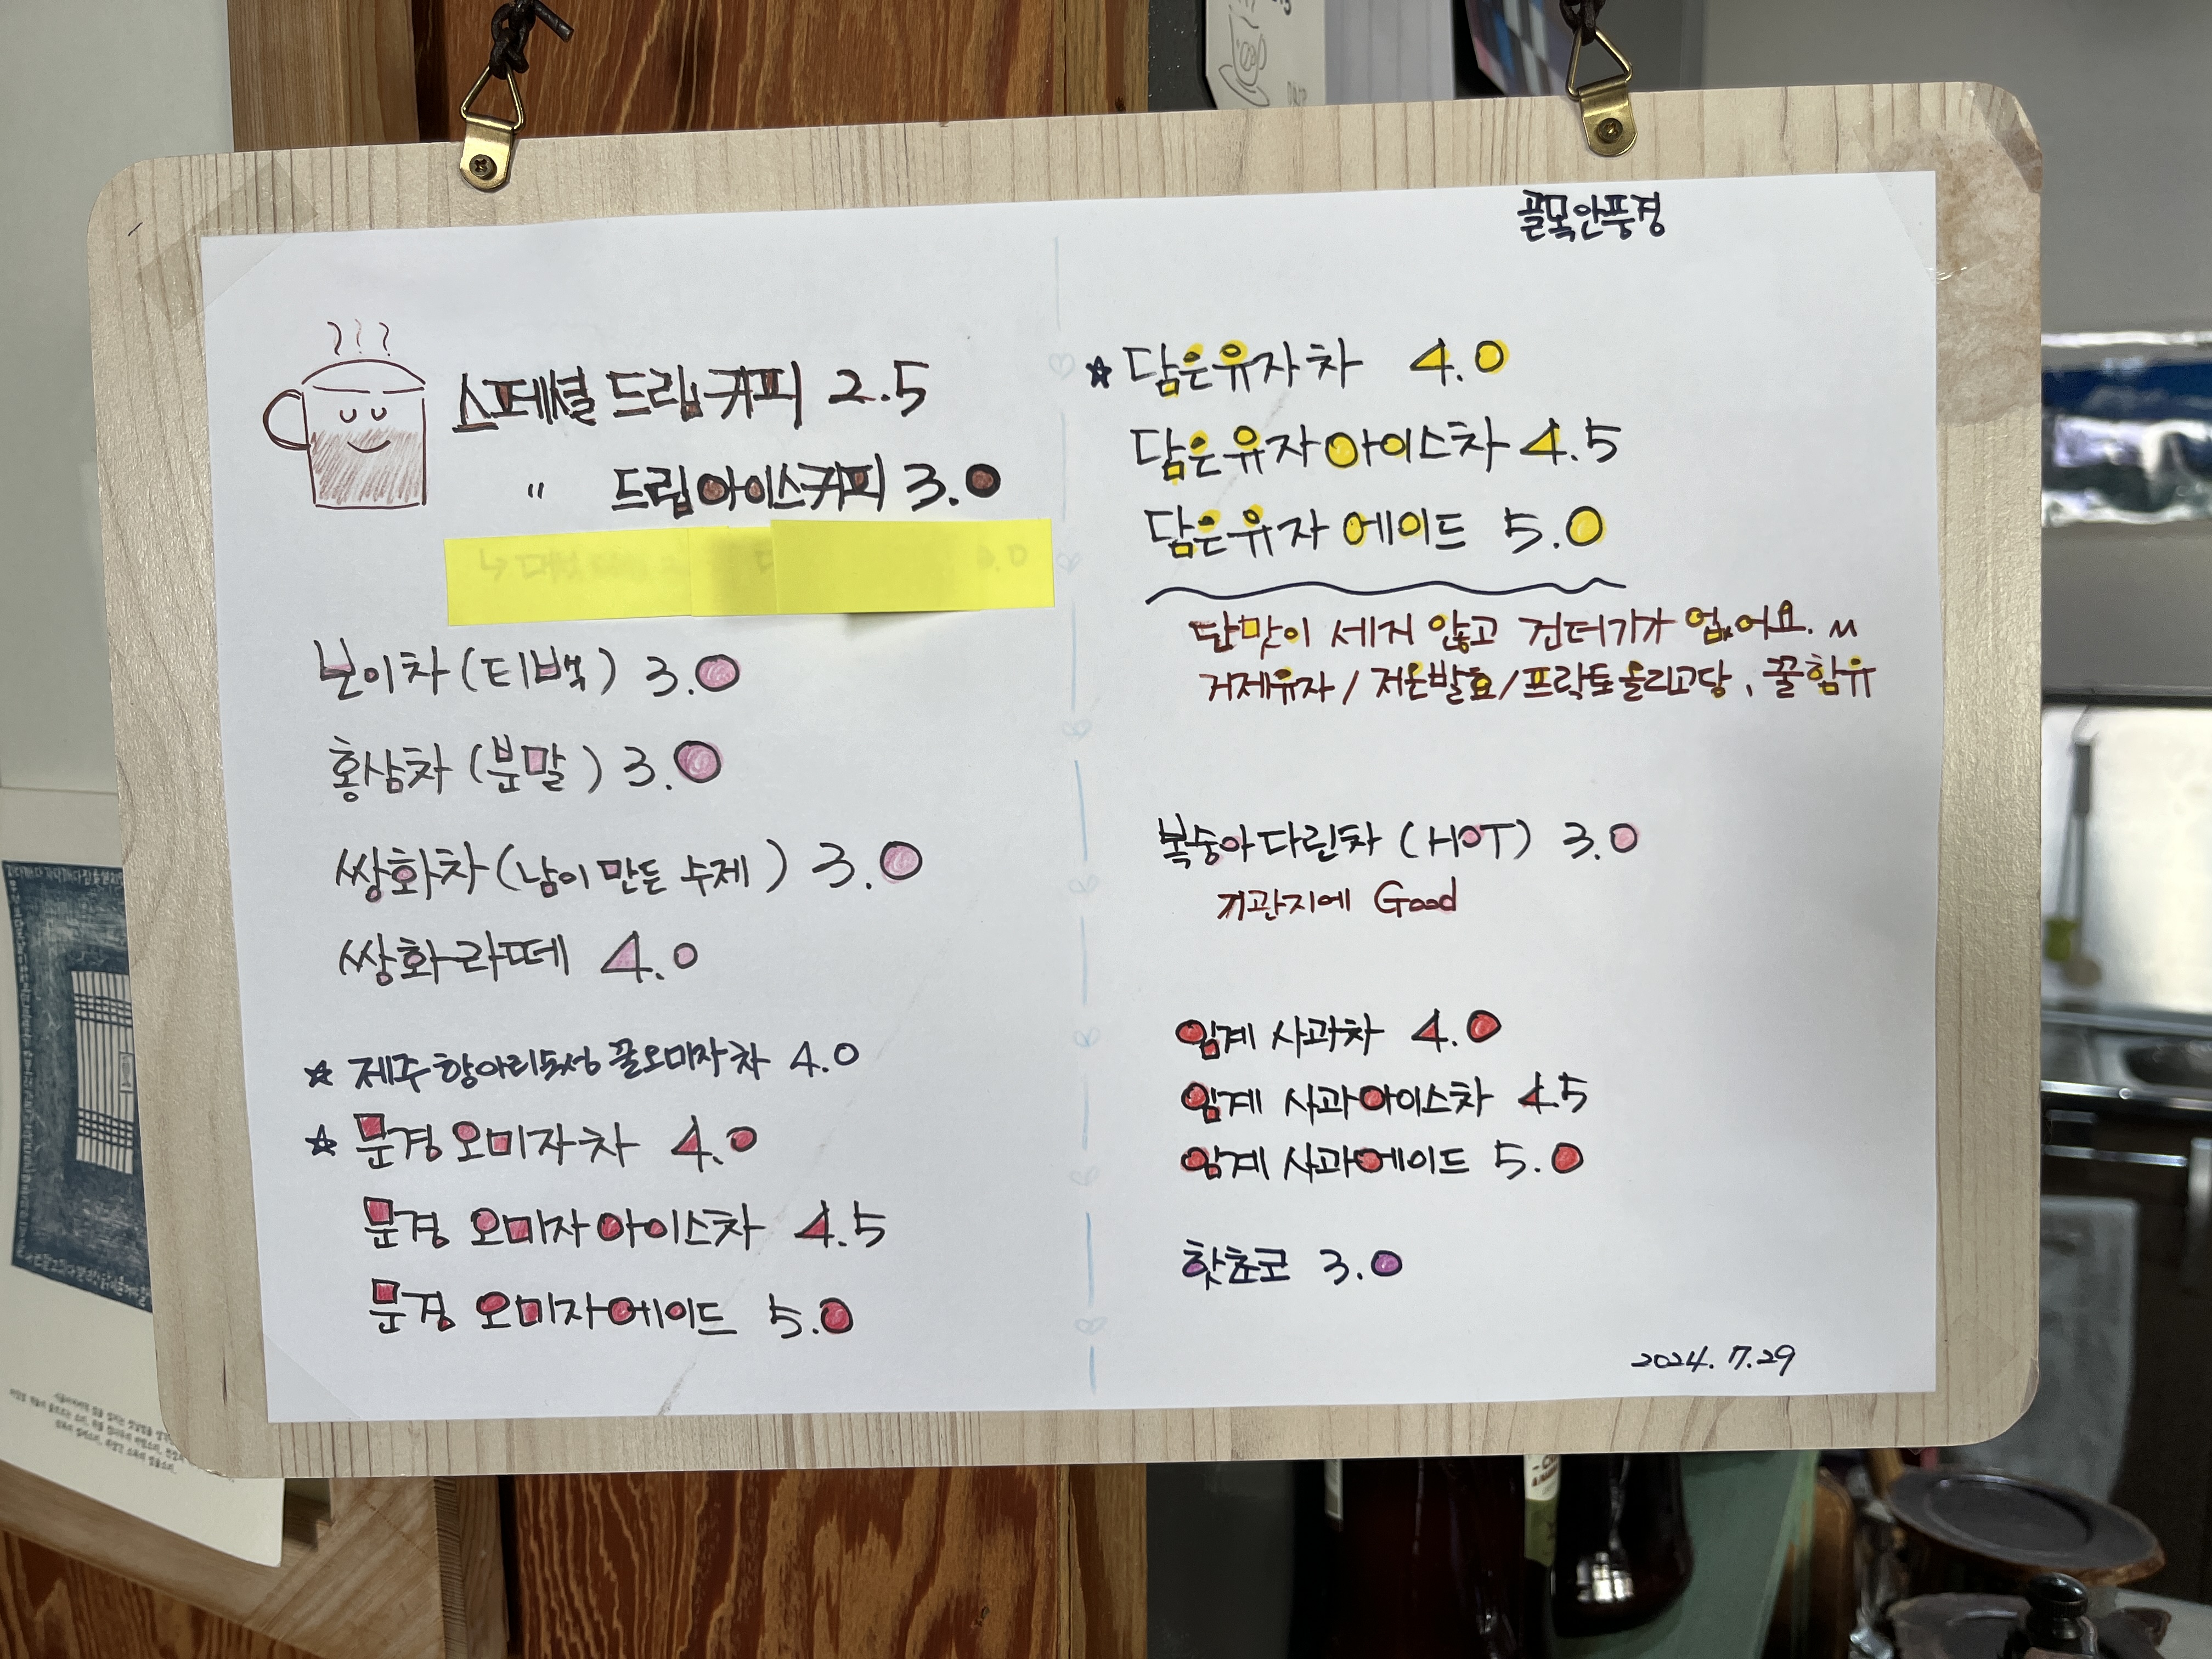 골목안풍경
스페셜 드립커피 2.5
〃 드립아이스커피 3.0
보이차 (티백) 3.0
홍삼차 (분말) 3.0
쌍화차 (남이 만든 수제) 3.0
쌍화라떼 4.0
☆ 제주항아리숙성 꿀오미자차 4.0
☆ 문경 오미자차 4.0
문경 오미자아이스차 4.5
문경 오미자에이드 5.0
☆ 담은유자차 4.0
담은유자아이스차 4.5
담은유자 에이드 5.0
단맛이 세지 않고 건더기가 없어요. ^^
거제유자 / 저온발효 / 프락토올리고당, 꿀함유
복숭아다린차 (HOT) 3.0
기관지에 Good
임계 사과차 4.0
임계 사과아이스차 4.5
임계 사과에이드 5.0
핫쵸코 3.0
2024. 7. 29